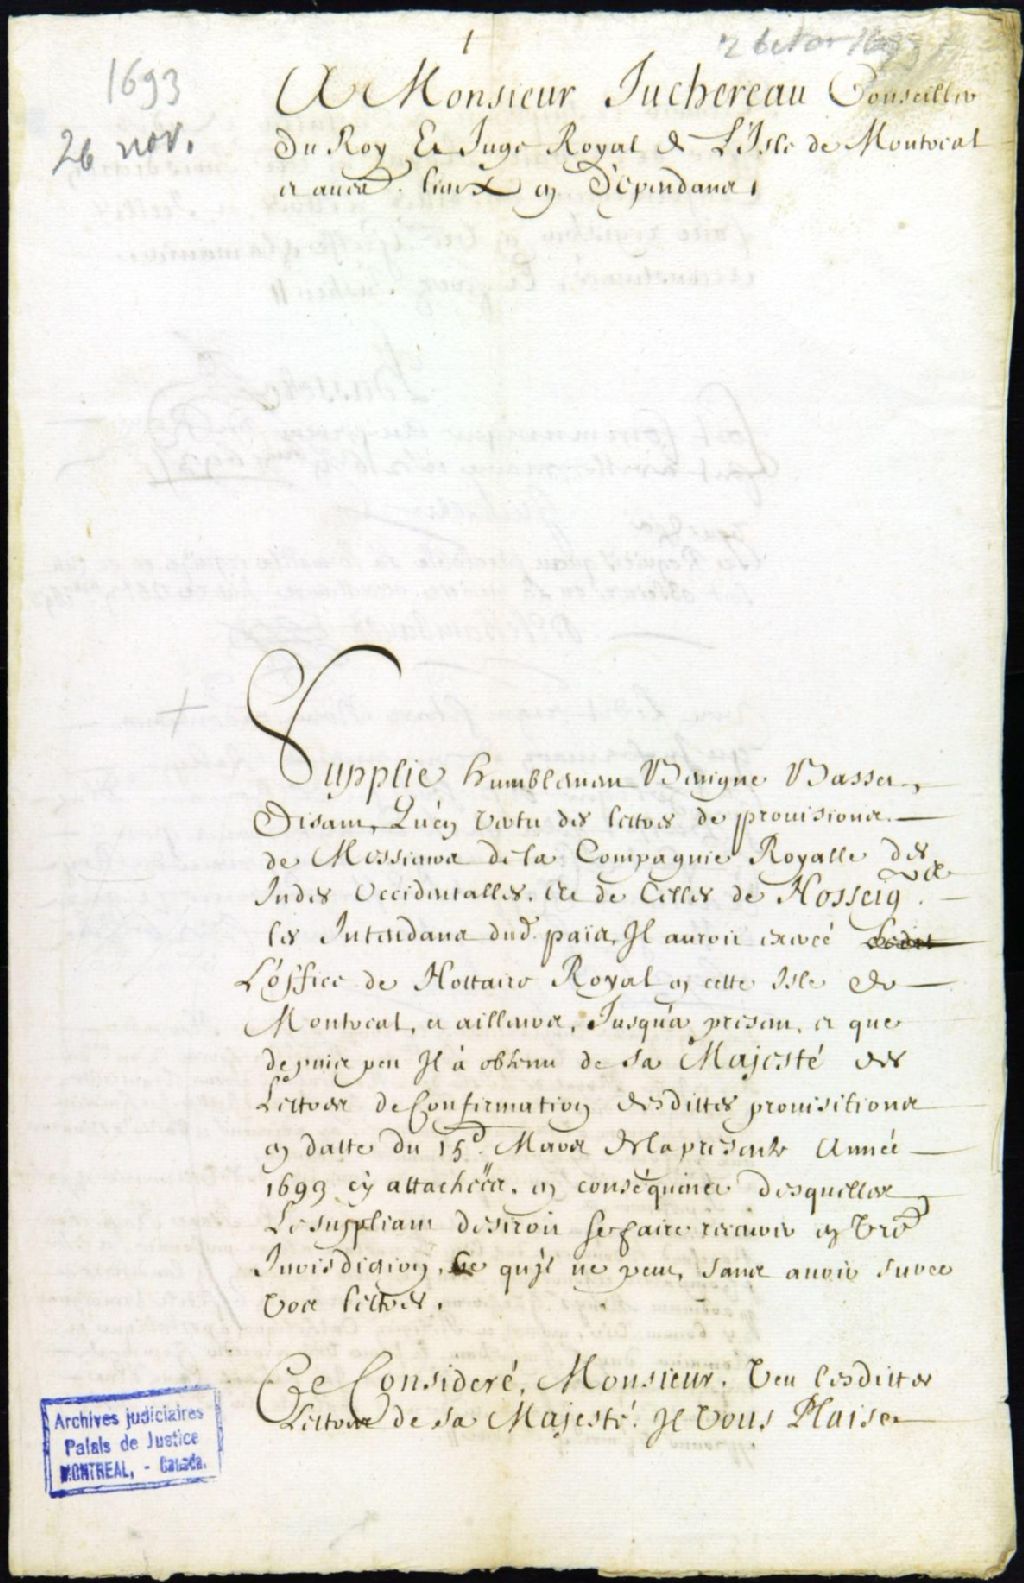 1
1693
26 nov.
A Monsieur Juchereau Conseiller
Du Roy Et Juge Royal de L'Isle de Montreal
et autres lieux en Dépendans
Supplie humblement Benigne Basset,
Disant, Qu'en vertu des lettres de provisions
de Messieurs de la Compagnie Royalle des
Indes Occidentalles, et de Celles de Nosseigrs.
les Intendans dud. païs, Il auroit exercé
L'office de Nottaire Royal en cette Isle de
Montreal, et ailleurs, Jusqu'a present, et que
depuis peu Il à obtenu de Sa Majesté des
Lettres de Confirmation desdittes provisitions
en datte du 15e. Mars de la presente Année
1693 cy attachées. en conséquence desquelles
Le suppliant desiroit se faire recevoir en Vre
Jurisdiction, Ce qu'Il ne peut, sans avoir sur ce
Vos lettres.
Ce Consideré, Monsieur. Veu lesdittes
Lettres de Sa Majesté. Il Vous Plaise
Archives judiciaires
Palais de Justice
MONTREAL, - Canada.